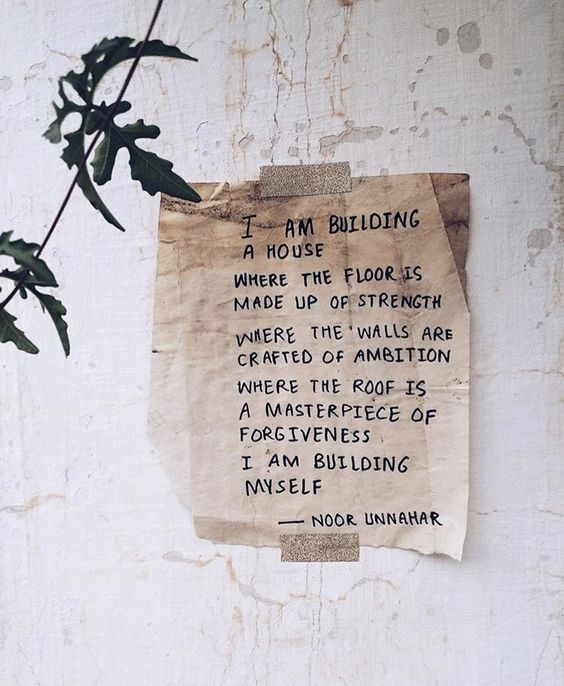 I AM BUILDING
A HOUSE
WHERE THE FLOOR IS
MADE UP OF STRENGTH
WHERE THE WALLS ARE
CRAFTED OF AMBITION
WHERE THE ROOF IS
A MASTERPIECE OF
FORGIVENESS
I AM BUILDING
MYSELF
— NOOR UNNAHAR